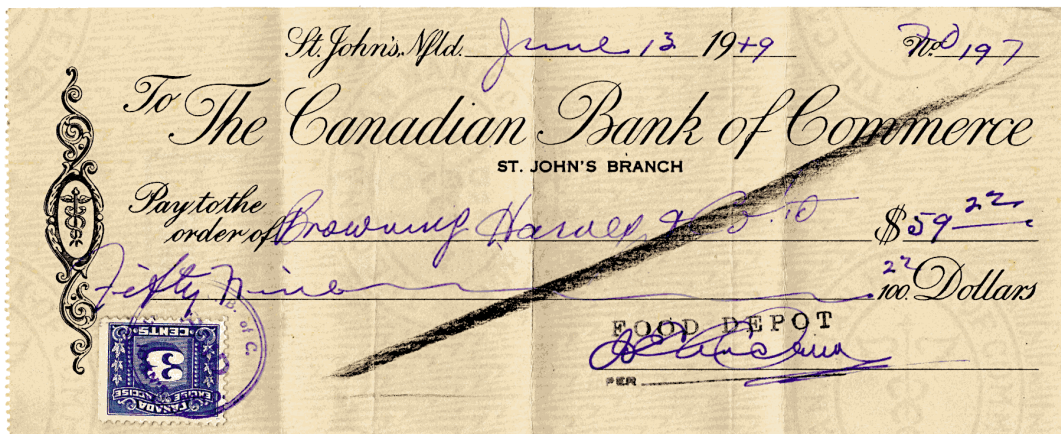 St. John's, Nfld. June 13 1949 No. 197
To The Canadian Bank of Commerce
ST. JOHN'S BRANCH
Pay to the order of Browning Harvey & Co Ltd $59 22
Fifty Nine 22/100 Dollars
FOOD DEPOT
PER
B. of C.
3
CENTS
CANADA
EXCISE ACCISE